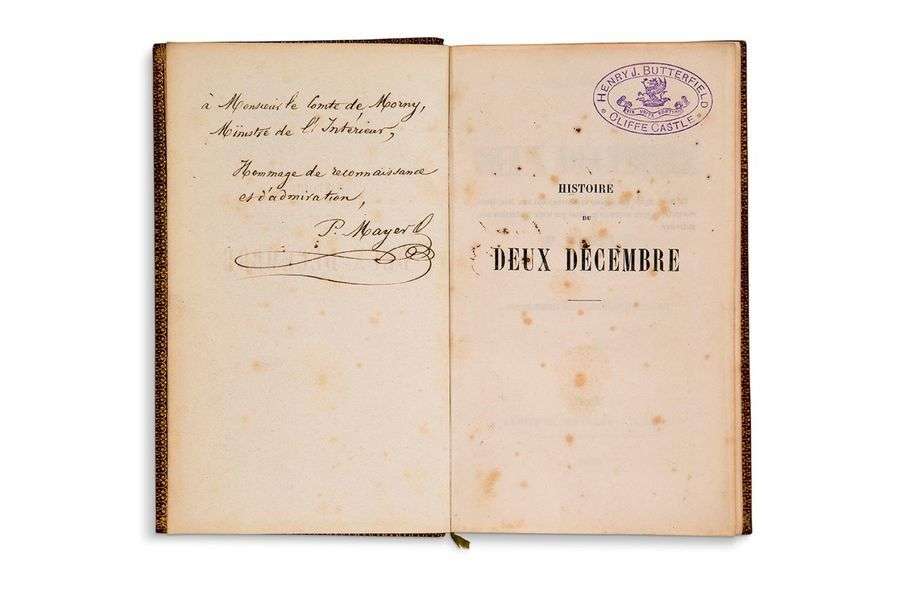 à Monsieur le Comte de Morny,
Ministre de l'Intérieur,
Hommage de reconnaissance
et d'admiration,
P. Mayer
HENRY J. BUTTERFIELD
CLIFFE CASTLE
HISTOIRE
DU
DEUX DÉCEMBRE